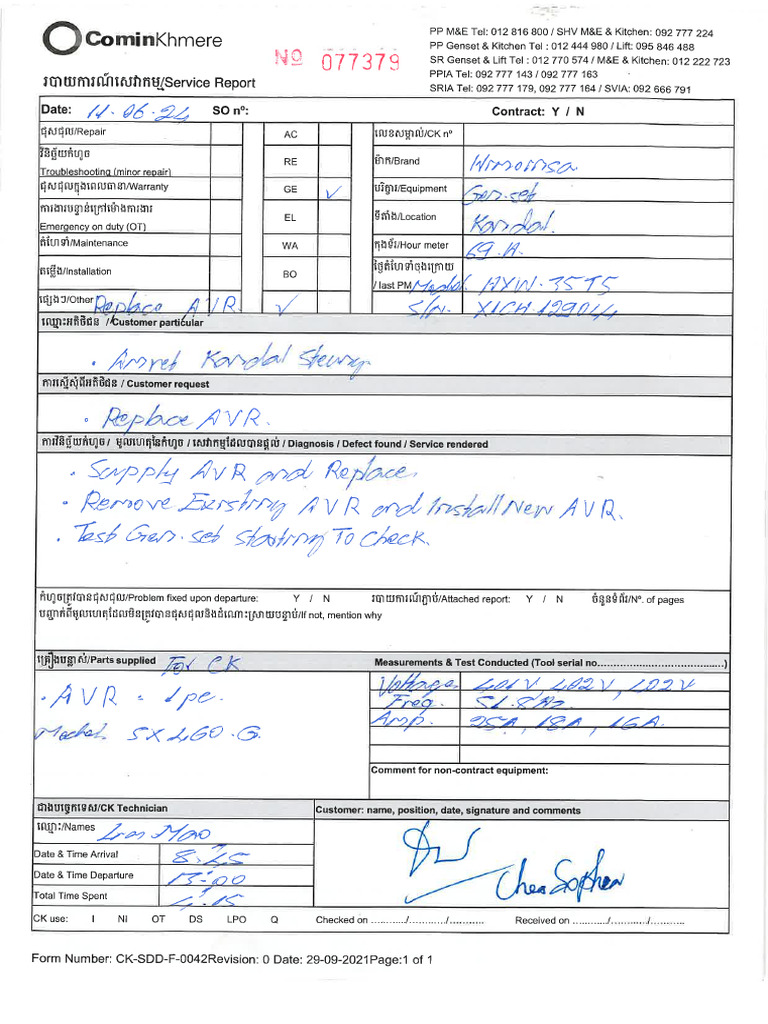 CominKhmere
PP M&E Tel: 012 816 800 / SHV M&E & Kitchen: 092 777 224
PP Genset & Kitchen Tel : 012 444 980 / Lift: 095 846 488
SR Genset & Lift Tel : 012 770 574 / M&E & Kitchen: 012 222 723
PPIA Tel: 092 777 143 / 092 777 163
SRIA Tel: 092 777 179, 092 777 164 / SVIA: 092 666 791
Nº 077379
របាយការណ៍សេវាកម្ម/Service Report
Date: 11.06.24 SO nº: Contract: Y / N
ជុសជុល/Repair AC លេខសម្គាល់/CK nº
វិនិច្ឆ័យកំហូច
Troubleshooting (minor repair) RE ម៉ាក/Brand Himoinsa
ជុសជុលក្នុងពេលធានា/Warranty GE ✓ បរិក្ខារ/Equipment Gen.set
ការងារបន្ទាន់ក្រៅម៉ោងការងារ
Emergency on duty (OT) EL ទីតាំង/Location Kandal.
តំហែទាំ/Maintenance WA កុងទ័រ/Hour meter 69.H.
តម្លើង/Installation BO ថ្ងៃតំហែទាំចុងក្រោយ
/ last PM Model. HYW-35T5
ផ្សេងៗ/Other Replace AVR. ✓ S/N.
ឈ្មោះអតិថិជន / Customer particular
. Amret Kandal Steung
ការស្នើសុំពីអតិថិជន / Customer request
. Replace AVR.
ការវិនិច្ឆ័យកំហូច / មូលហេតុនៃកំហូច / សេវាកម្មដែលបានផ្តល់ / Diagnosis / Defect found / Service rendered
. Supply AVR and Replace.
. Remove Existing AVR and Install New AVR.
. Test Gen.set starting To Check.
កំហូចត្រូវបានជុសជុល/Problem fixed upon departure: Y / N របាយការណ៍ភ្ជាប់/Attached report: Y / N ចំនួនទំព័រ/Nº. of pages
បញ្ជាក់ពីមូលហេតុដែលមិនត្រូវបានជុសជុលនិងដំណោះស្រាយបន្ទាប់/If not, mention why
គ្រឿងបន្លាស់/Parts supplied For CK Measurements & Test Conducted (Tool serial no.......................................)
. AVR = 1pc. Voltage. 401V, 402V, 402V
Freq. 51.8Hz.
Model SX460.G. Amp. 25A, 18A, 16A.
Comment for non-contract equipment:
ជាងបច្ចេកទេស/CK Technician Customer: name, position, date, signature and comments
ឈ្មោះ/Names Mao
Date & Time Arrival 8:45
Date & Time Departure 13:00
Total Time Spent 4:15
Chea Sophea
CK use: I NI OT DS LPO Q Checked on .........../.........../........... Received on .........../.........../...........
Form Number: CK-SDD-F-0042Revision: 0 Date: 29-09-2021Page:1 of 1